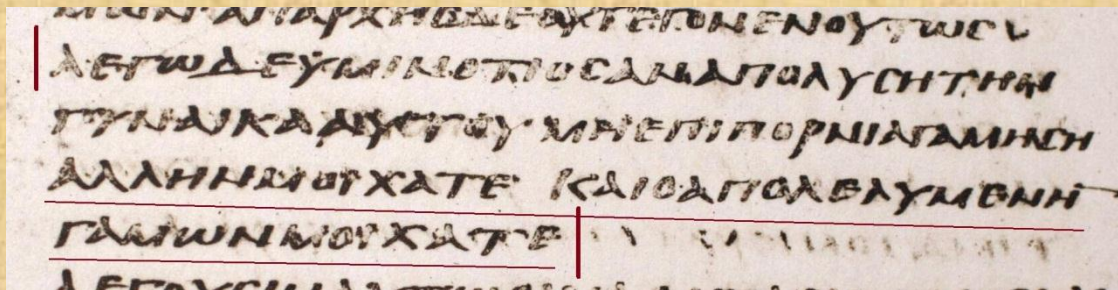 ΓΕΓΟΝΕΝ ΟΥΤΩϹ
ΛΕΓΩ ΔΕ ΫΜΙΝ ΟΤΙ ΟϹ ΑΝ ΑΠΟΛΥϹΗ ΤΗΝ
ΓΥΝΑΙΚΑ ΑΥΤΟΥ ΜΗ ΕΠΙ ΠΟΡΝΙΑ ΓΑΜΗϹΗ
ΑΛΛΗΝ ΜΟΙΧΑΤΕ ΚΑΙ Ο ΑΠΟΛΕΛΥΜΕΝΗ̄
ΓΑΜΩΝ ΜΟΙΧΑΤΕ